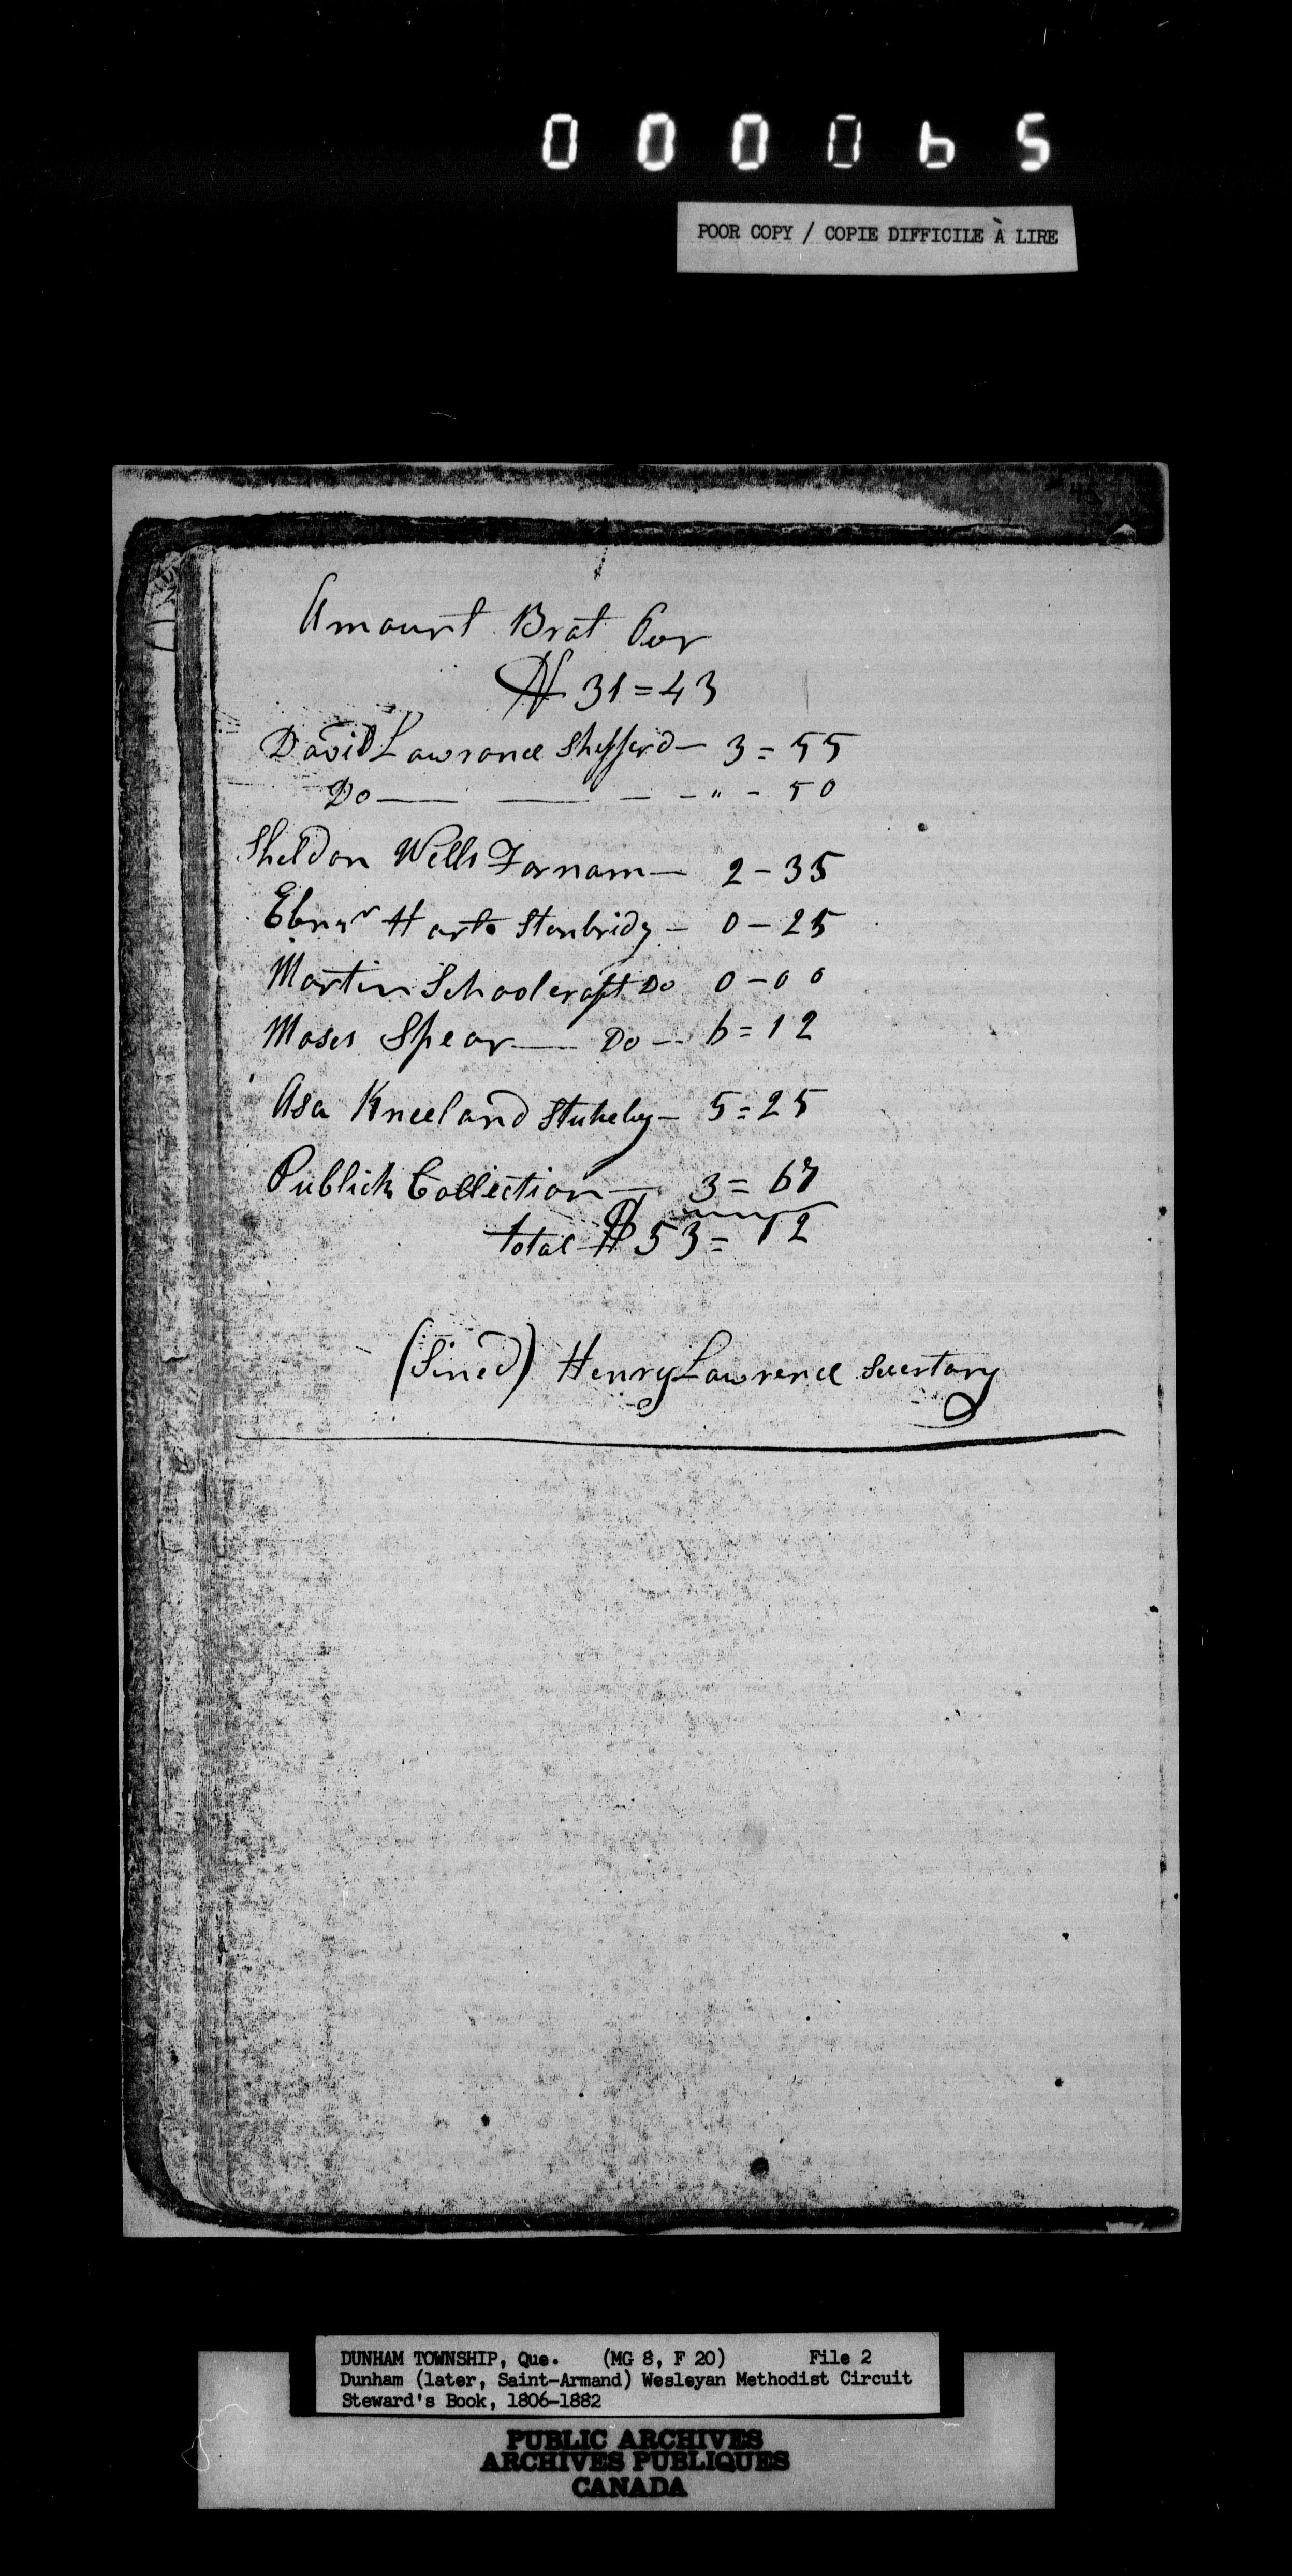 000065
POOR COPY / COPIE DIFFICILE À LIRE
Amount Brot Over
$ 31=43
David Lawrance Shefferd — 3=55
Do — — — - " - 50
Sheldon Wells Farnam — 2-35
Ebnr Harts Stanbridg — 0-25
Martin Schoolcraft Do 0-00
Moses Spear — Do — 6=12
Asa Kneeland Stukely — 5=25
Publick Collection — 3=67
total $ 53=12
(Sined) Henry Lawrence Secrtary
DUNHAM TOWNSHIP, Que. (MG 8, F 20) File 2
Dunham (later, Saint-Armand) Wesleyan Methodist Circuit
Steward's Book, 1806-1882
PUBLIC ARCHIVES
ARCHIVES PUBLIQUES
CANADA